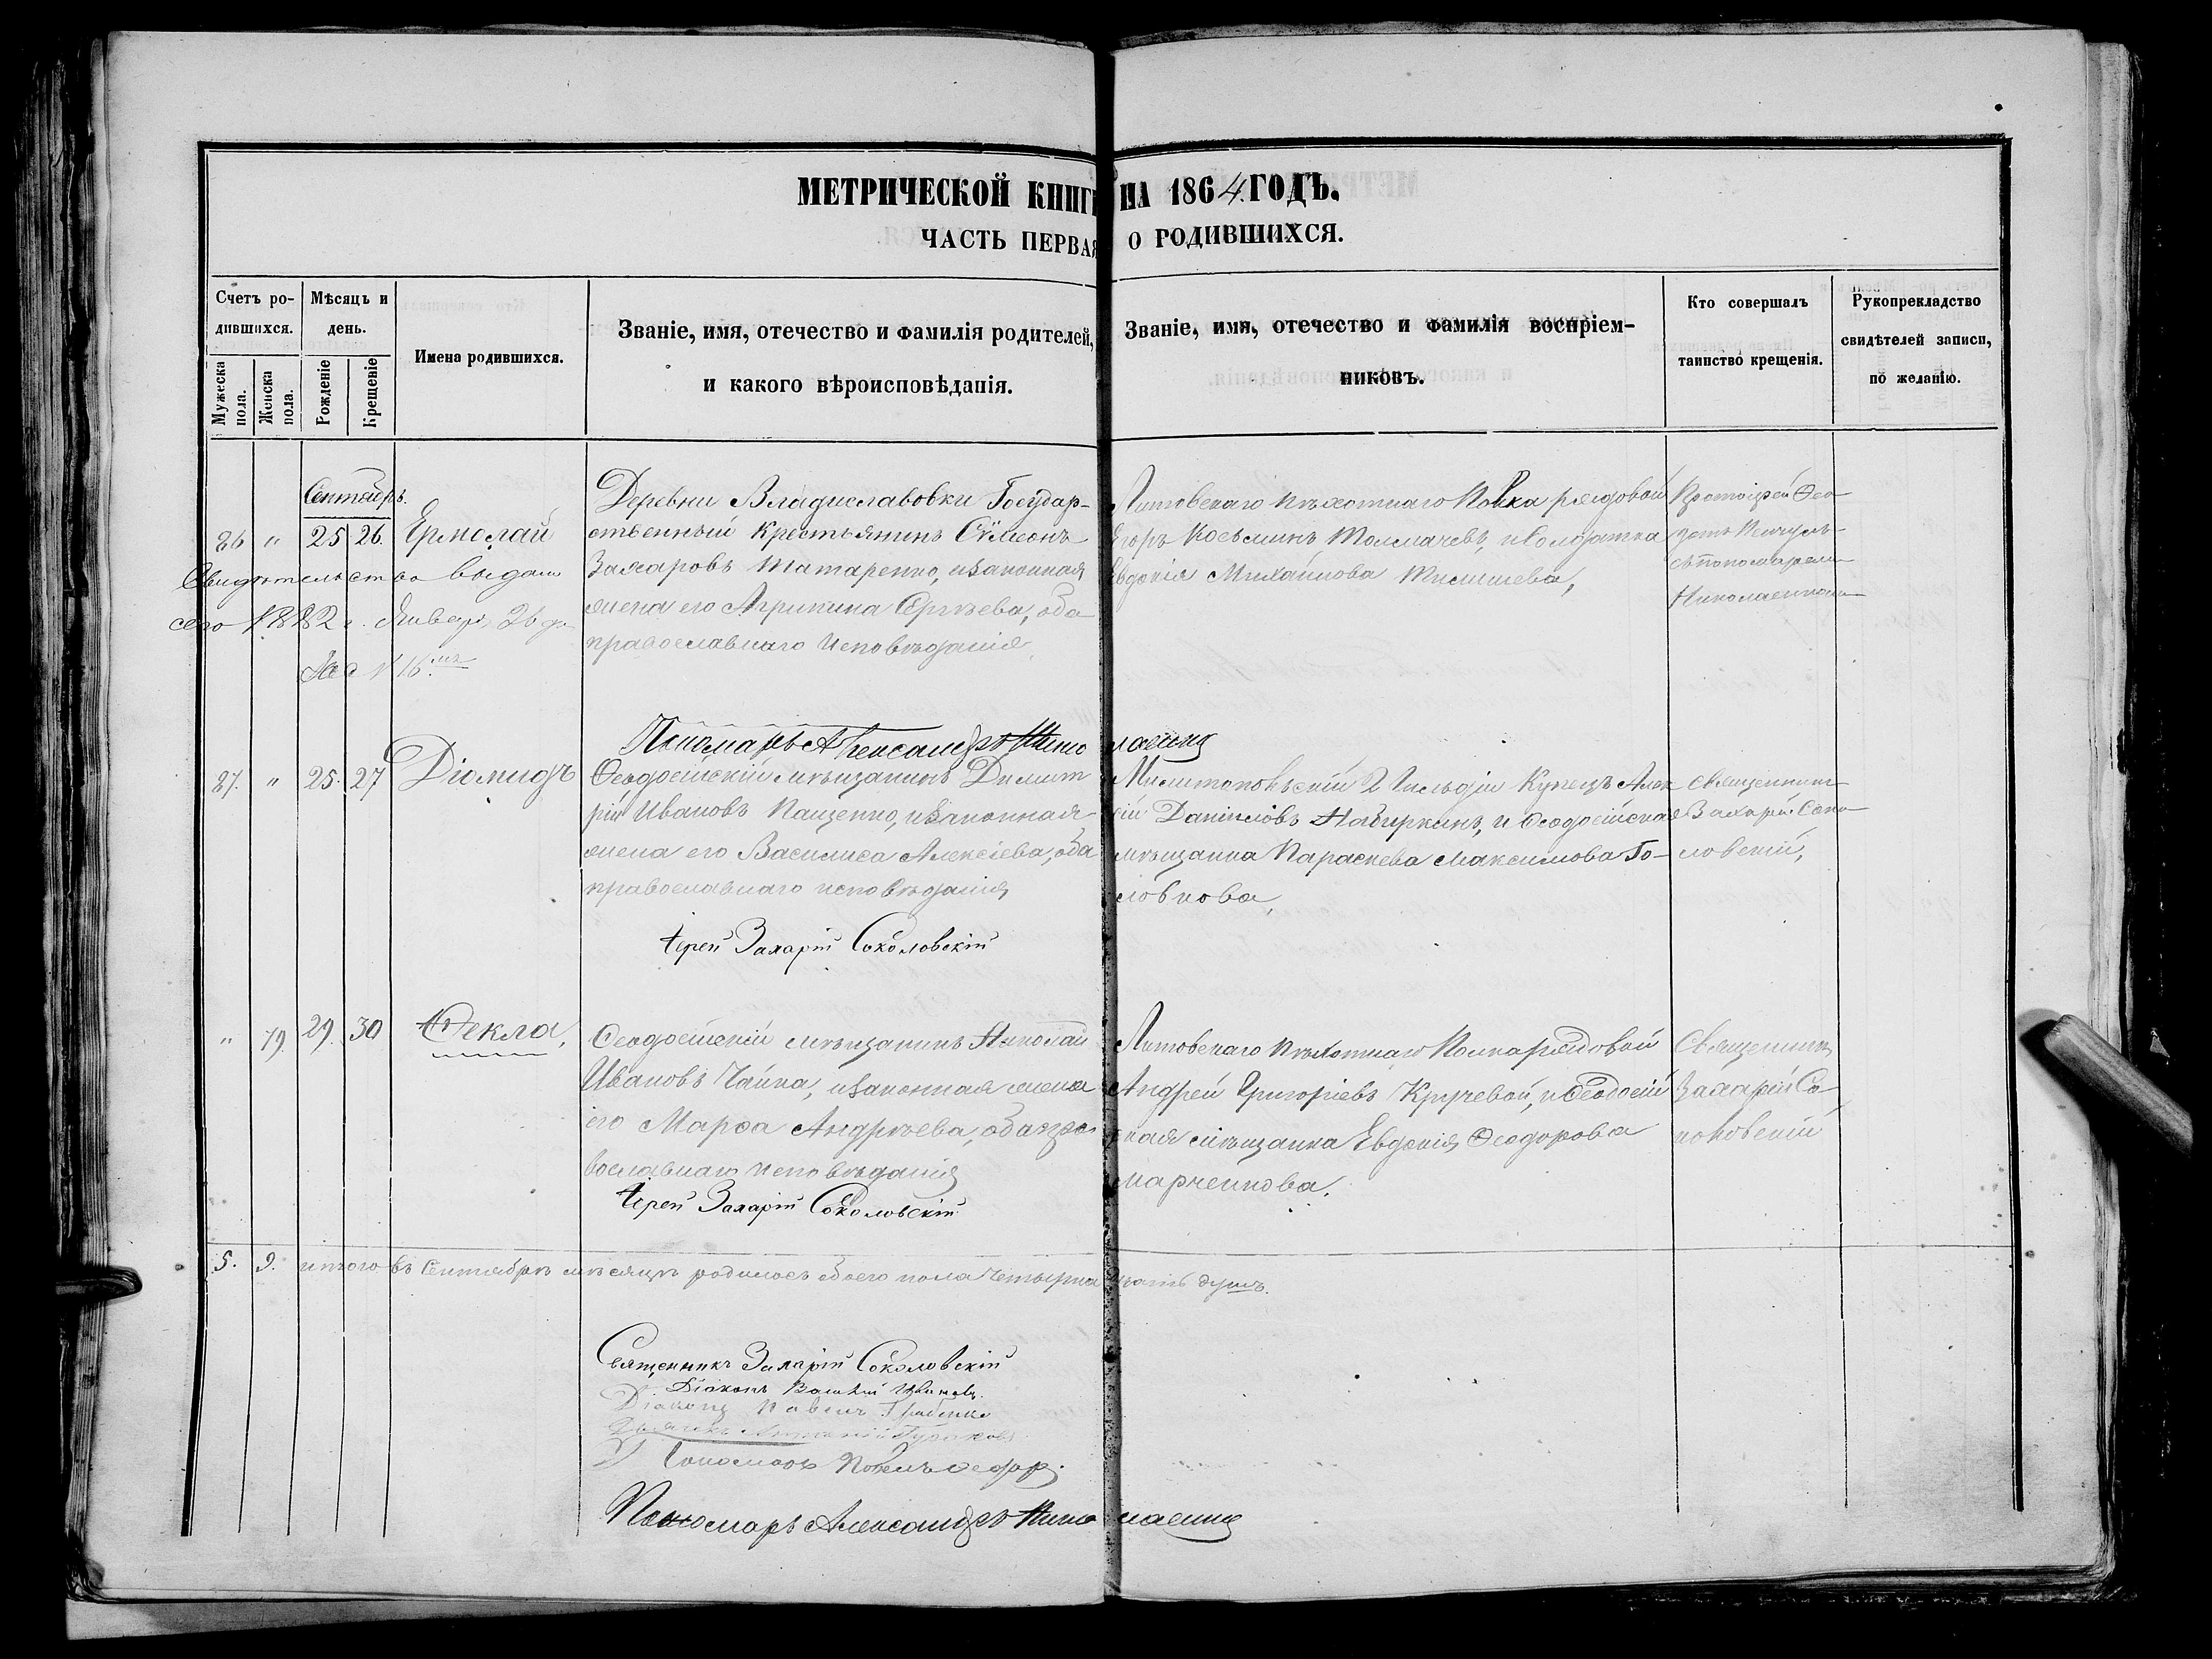 МЕТРИЧЕСКОЙ КНИГИ НА 1864 ГОДЪ.
ЧАСТЬ ПЕРВАЯ О РОДИВШИХСЯ.
Счетъ ро-
дившихся.
Мужеска
пола.
Женска
пола.
Мѣсяцъ и
день.
Рожденіе
Крещеніе
Имена родившихся.
Званіе, имя, отечество и фамилія родителей,
и какого вѣроисповѣданія.
Званіе, имя, отечество и фамилія воспріем-
никовъ.
Кто совершалъ
таинство крещенія.
Рукоприкладство
свидѣтелей записи,
по желанію.
Сентябрь.
26 " 25 26. Ермолай
Свидѣтельство выдан
сего 1882 г. Январ 26 д.
за № 16
Деревни Владиславовки Государ-
ственный крестьянинъ Сѵмеонъ
Захаровъ Татаренко, изаконная
жена его Агрипина Сергѣева, оба
православнаго исповѣданія,
Литовскаго пѣхотнаго Полка рядовой
Егоръ Косьминъ Толмачевъ, и солдатка
Евдокія Михайлова
Протоіерей Ѳео-
съ пономаремъ
Пономарь Александръ
27. " 25. 27 Діомидъ
Ѳеодосійскій мѣщанинъ Димит
рій Ивановъ Пащенко, изаконная
жена его Василиса Алексіева, оба
православнаго исповѣданія
Іерей Захарій Соколовскій
Мелитопольскій 2 Гильдіи Купецъ Алек
сій Даніиловъ и Ѳеодосійская
мѣщанка Параскева Максимова Го-
ловкова,
Священникъ
Захарій Соко
ловскій,
" 19. 29. 30 Ѳекла,
Ѳеодосійскій мѣщанинъ Николай
Ивановъ Чайка, изаконная жена
его Марѳа Андрѣева, оба пра
вославнаго исповѣданія
Іерей Захарій Соколовскій
Литовскаго пѣхотнаго Полка рядовой
Андрей Григоріевъ Кручевой, и Ѳеодосій
ская мѣщанка Евдокія Ѳеодорова
марченкова.
Священникъ
Захарій Со
коловскій
5. 9. итого въ Сентябрѣ мѣсяцѣ родилось обоего пола четырнадцать душъ.
Священникъ Захарій Соколовскій
Діаконъ Василій Ивановъ.
Діаконъ Павелъ
Пономарь
Пономарь Александръ